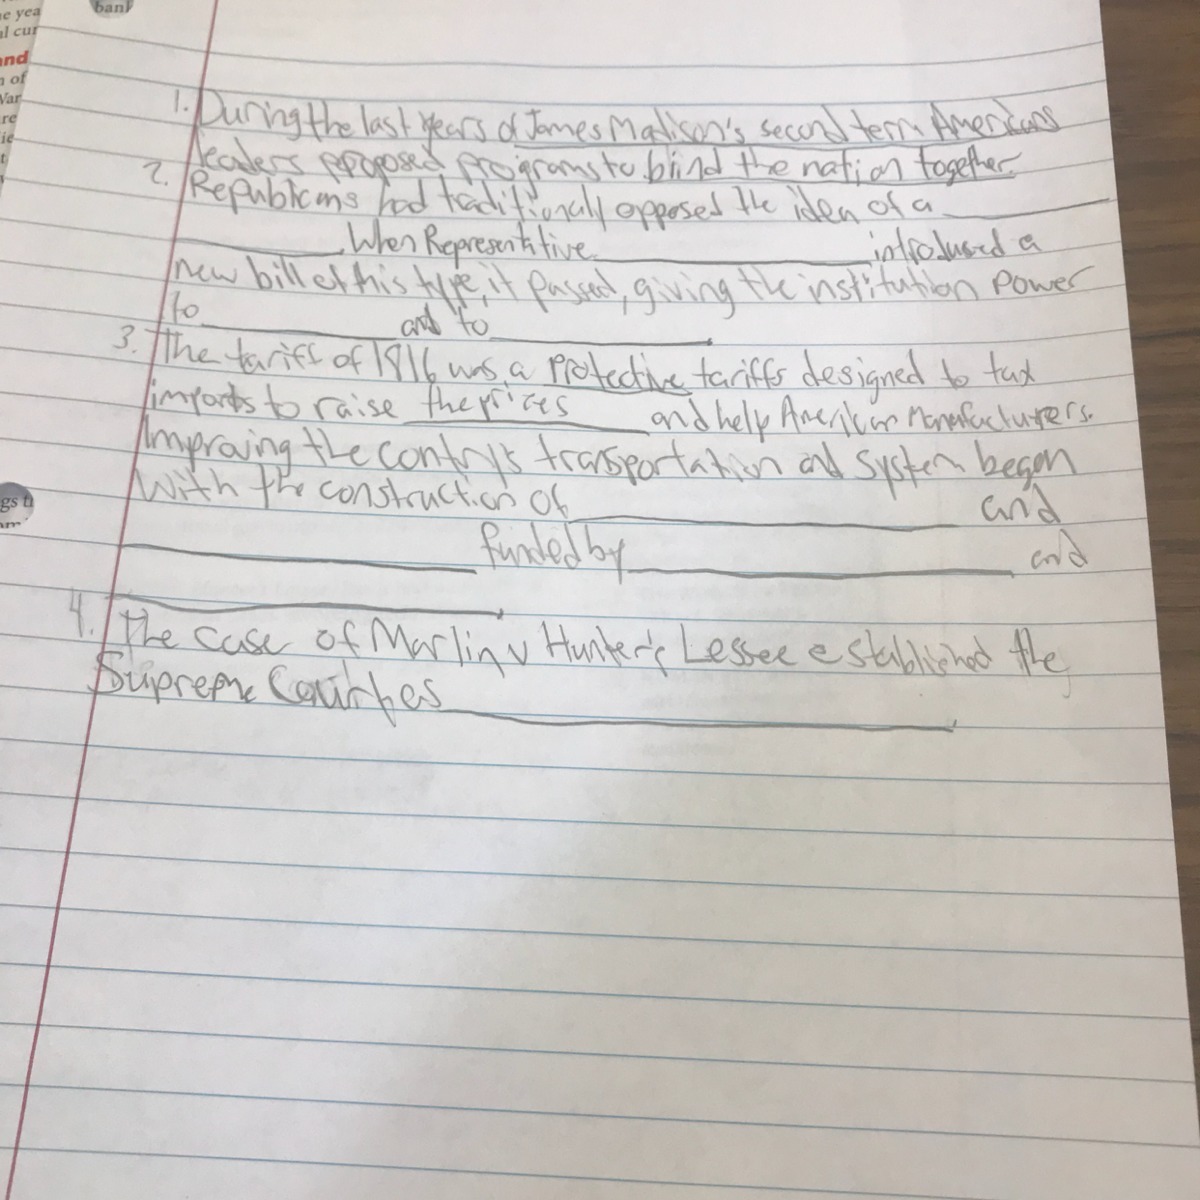 e yea
al cur
and
n of
War
re
ie
t
bank
gs t
1. During the last years of James Madison's second term Americans
leaders proposed programs to blind the nation together.
2. Republicans had traditionally opposed the idea of a
When Representitive introdused a
new bill of this type, it passed, giving the institution power
to and to
3. The tariff of 1816 was a protective tariffs designed to tax
imports to raise the prices and help American Manufacturers.
Improving the contry's transportation and system began
With the construction of and
funded by and
4. The case of Marlin v Hunter's Lessee established the
Supreme Courtes